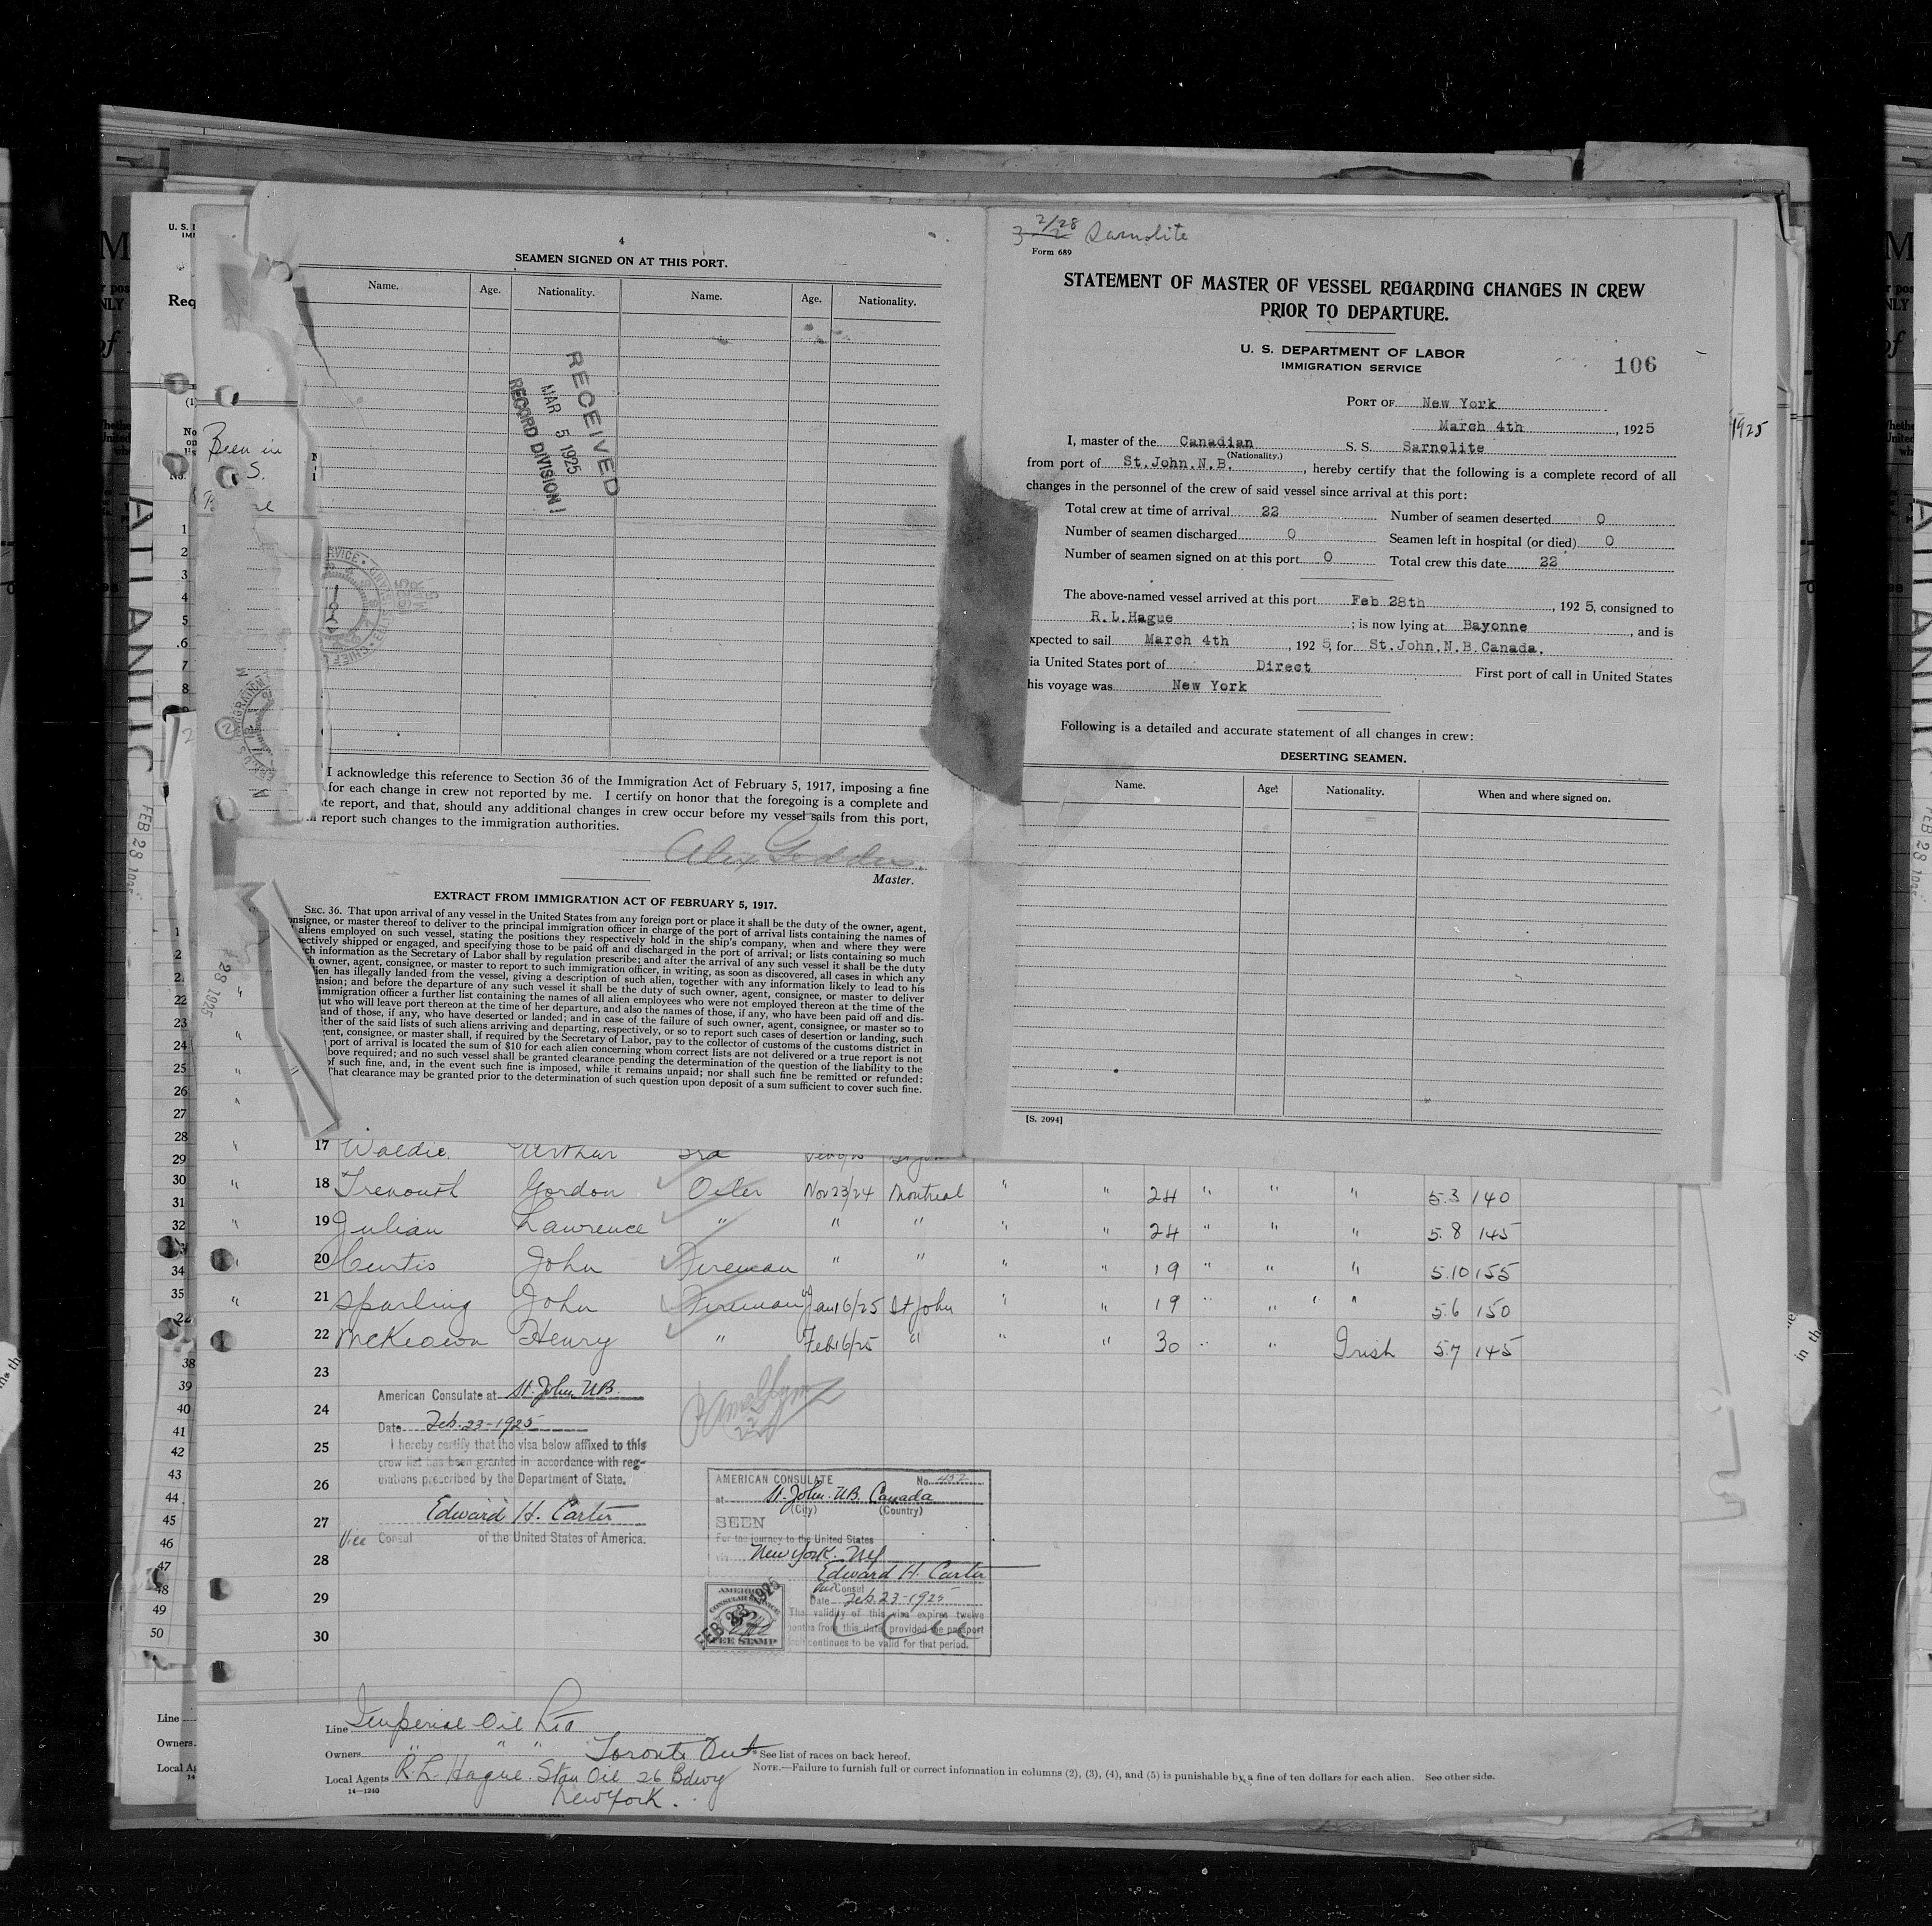 4
SEAMEN SIGNED ON AT THIS PORT.
Name. Age. Nationality. Name. Age. Nationality.
RECEIVED
MAR 5 1925
RECORD DIVISION
I acknowledge this reference to Section 36 of the Immigration Act of February 5, 1917, imposing a fine
for each change in crew not reported by me. I certify on honor that the foregoing is a complete and
te report, and that, should any additional changes in crew occur before my vessel sails from this port,
report such changes to the immigration authorities.
Alex Geddes
Master.
EXTRACT FROM IMMIGRATION ACT OF FEBRUARY 5, 1917.
SEC. 36. That upon arrival of any vessel in the United States from any foreign port or place it shall be the duty of the owner, agent,
onsignee, or master thereof to deliver to the principal immigration officer in charge of the port of arrival lists containing the names of
aliens employed on such vessel, stating the positions they respectively hold in the ship's company, when and where they were
ectively shipped or engaged, and specifying those to be paid off and discharged in the port of arrival; or lists containing so much
ch information as the Secretary of Labor shall by regulation prescribe; and after the arrival of any such vessel it shall be the duty
h owner, agent, consignee, or master to report to such immigration officer, in writing, as soon as discovered, all cases in which any
lien has illegally landed from the vessel, giving a description of such alien, together with any information likely to lead to his
nsion; and before the departure of any such vessel it shall be the duty of such owner, agent, consignee, or master to deliver
immigration officer a further list containing the names of all alien employees who were not employed thereon at the time of the
ut who will leave port thereon at the time of her departure, and also the names of those, if any, who have been paid off and dis-
and of those, if any, who have deserted or landed; and in case of the failure of such owner, agent, consignee, or master so to
ither of the said lists of such aliens arriving and departing, respectively, or so to report such cases of desertion or landing, such
gent, consignee, or master shall, if required by the Secretary of Labor, pay to the collector of customs of the customs district in
port of arrival is located the sum of $10 for each alien concerning whom correct lists are not delivered or a true report is not
bove required; and no such vessel shall be granted clearance pending the determination of the question of the liability to the
of such fine, and, in the event such fine is imposed, while it remains unpaid; nor shall such fine be remitted or refunded:
That clearance may be granted prior to the determination of such question upon deposit of a sum sufficient to cover such fine.
2/28 Sarnolite
Form 689
STATEMENT OF MASTER OF VESSEL REGARDING CHANGES IN CREW
PRIOR TO DEPARTURE.
U. S. DEPARTMENT OF LABOR
IMMIGRATION SERVICE
106
PORT OF New York
March 4th, 1925
I, master of the Canadian S. S. Sarnolite
(Nationality.)
from port of St.John.N.B., hereby certify that the following is a complete record of all
changes in the personnel of the crew of said vessel since arrival at this port:
Total crew at time of arrival 22 Number of seamen deserted 0
Number of seamen discharged 0 Seamen left in hospital (or died) 0
Number of seamen signed on at this port 0 Total crew this date 22
The above-named vessel arrived at this port Feb 28th, 1925, consigned to
R.L.Hague; is now lying at Bayonne, and is
xpected to sail March 4th, 1925, for St.John.N.B.Canada.
ia United States port of Direct First port of call in United States
his voyage was New York
Following is a detailed and accurate statement of all changes in crew:
DESERTING SEAMEN.
Name. Age. Nationality. When and where signed on.
[S. 2094]
1925
U. S.
Req
Been in
S.
ATLANTIC
FEB 28 1925
28 1925
17 Waldie. Arthur 3rd
18 Trenouth Gordon Oiler Nov 23/24 Montreal " " 24 " " " 5.3 140
19 Julian Lawrence " " " " " 24 " " " 5.8 145
20 Curtis John Fireman " " " " 19 " " " 5.10 155
21 Sparling John Fireman Jan 16/25 St John " " 19 " " " 5.6 150
22 McKeown Henry " Feb 16/25 " " " 30 " " Irish 5.7 145
23
24
25
26
27
28
29
30
American Consulate at St. John N.B.
Date Feb. 23-1925
I hereby certify that the visa below affixed to this
crew list has been granted in accordance with reg-
ulations prescribed by the Department of State.
Edward H. Carter
Vice Consul of the United States of America.
AMERICAN CONSULATE No. 452
at St. John. N.B. Canada
(City) (Country)
SEEN
For the journey to the United States
via New York. NY
Edward H. Carter
Vice Consul
Date Feb. 23-1925
The validity of this visa expires twelve
months from this date, provided the passport
continues to be valid for that period.
AMERICAN
CONSULAR SERVICE
FEE STAMP
FEB 23 1925
Line Imperial Oil Ltd
Owners " " " Toronto Ont
* See list of races on back hereof.
Local Agents R. L. Hague. Stan Oil 26 Bdwy
New York.
NOTE.—Failure to furnish full or correct information in columns (2), (3), (4), and (5) is punishable by a fine of ten dollars for each alien. See other side.
14—1240
Line
Owners.
Local A